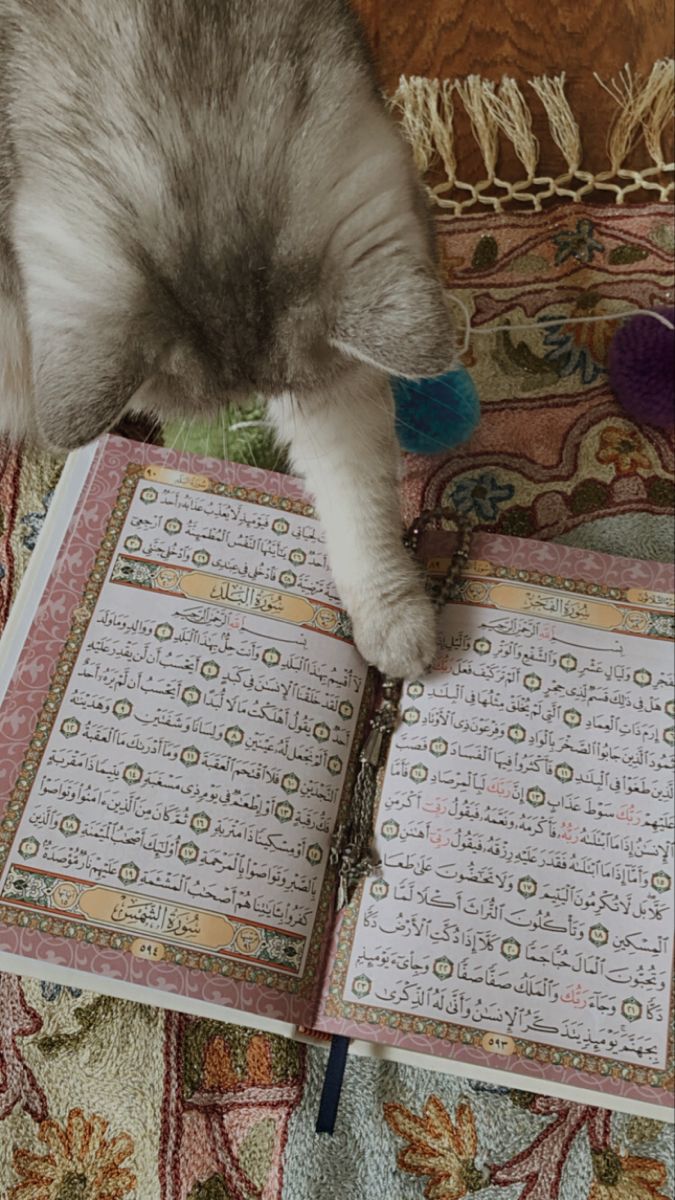 سُورَةُ الفَجْرِ
بِسْمِ ٱللَّهِ ٱلرَّحْمَٰنِ ٱلرَّحِيمِ
وَلَيَالٍ عَشْرٍ ٢ وَٱلشَّفْعِ وَٱلْوَتْرِ ٣ وَٱلَّيْلِ
هَلْ فِى ذَٰلِكَ قَسَمٌ لِّذِى حِجْرٍ ٥ أَلَمْ تَرَ كَيْفَ فَعَلَ رَبُّكَ
إِرَمَ ذَاتِ ٱلْعِمَادِ ٧ ٱلَّتِى لَمْ يُخْلَقْ مِثْلُهَا فِى ٱلْبِلَٰدِ ٨
وَثَمُودَ ٱلَّذِينَ جَابُوا۟ ٱلصَّخْرَ بِٱلْوَادِ ٩ وَفِرْعَوْنَ ذِى ٱلْأَوْتَادِ ١٠
ٱلَّذِينَ طَغَوْا۟ فِى ٱلْبِلَٰدِ ١١ فَأَكْثَرُوا۟ فِيهَا ٱلْفَسَادَ ١٢ فَصَبَّ
عَلَيْهِمْ رَبُّكَ سَوْطَ عَذَابٍ ١٣ إِنَّ رَبَّكَ لَبِٱلْمِرْصَادِ ١٤ فَأَمَّا
ٱلْإِنسَٰنُ إِذَا مَا ٱبْتَلَىٰهُ رَبُّهُۥ فَأَكْرَمَهُۥ وَنَعَّمَهُۥ فَيَقُولُ رَبِّىٓ أَكْرَمَنِ
١٥ وَأَمَّآ إِذَا مَا ٱبْتَلَىٰهُ فَقَدَرَ عَلَيْهِ رِزْقَهُۥ فَيَقُولُ رَبِّىٓ أَهَٰنَنِ ١٦
كَلَّا ۖ بَل لَّا تُكْرِمُونَ ٱلْيَتِيمَ ١٧ وَلَا تَحَٰٓضُّونَ عَلَىٰ طَعَامِ
ٱلْمِسْكِينِ ١٨ وَتَأْكُلُونَ ٱلتُّرَاثَ أَكْلًا لَّمًّا ١٩
وَتُحِبُّونَ ٱلْمَالَ حُبًّا جَمًّا ٢٠ كَلَّآ إِذَا دُكَّتِ ٱلْأَرْضُ دَكًّا
دَكًّا ٢١ وَجَآءَ رَبُّكَ وَٱلْمَلَكُ صَفًّا صَفًّا ٢٢ وَجِا۟ىٓءَ يَوْمَئِذٍۭ
بِجَهَنَّمَ ۚ يَوْمَئِذٍ يَتَذَكَّرُ ٱلْإِنسَٰنُ وَأَنَّىٰ لَهُ ٱلذِّكْرَىٰ ٢٣
٥٩٣
٩٠
لِحَيَاتِى ٢٤ فَيَوْمَئِذٍ لَّا يُعَذِّبُ عَذَابَهُۥٓ أَحَدٌ ٢٥
أَحَدٌ ٢٦ يَٰٓأَيَّتُهَا ٱلنَّفْسُ ٱلْمُطْمَئِنَّةُ ٢٧ ٱرْجِعِىٓ
مَّرْضِيَّةً ٢٨ فَٱدْخُلِى فِى عِبَٰدِى ٢٩ وَٱدْخُلِى جَنَّتِى ٣٠
سُورَةُ البَلَدِ
بِسْمِ ٱللَّهِ ٱلرَّحْمَٰنِ ٱلرَّحِيمِ
لَآ أُقْسِمُ بِهَٰذَا ٱلْبَلَدِ ١ وَأَنتَ حِلٌّۢ بِهَٰذَا ٱلْبَلَدِ ٢ وَوَالِدٍ وَمَا وَلَدَ
٣ لَقَدْ خَلَقْنَا ٱلْإِنسَٰنَ فِى كَبَدٍ ٤ أَيَحْسَبُ أَن لَّن يَقْدِرَ عَلَيْهِ
أَحَدٌ ٥ يَقُولُ أَهْلَكْتُ مَالًا لُّبَدًا ٦ أَيَحْسَبُ أَن لَّمْ يَرَهُۥٓ أَحَدٌ
٧ أَلَمْ نَجْعَل لَّهُۥ عَيْنَيْنِ ٨ وَلِسَانًا وَشَفَتَيْنِ ٩ وَهَدَيْنَٰهُ
ٱلنَّجْدَيْنِ ١٠ فَلَا ٱقْتَحَمَ ٱلْعَقَبَةَ ١١ وَمَآ أَدْرَىٰكَ مَا ٱلْعَقَبَةُ ١٢
فَكُّ رَقَبَةٍ ١٣ أَوْ إِطْعَٰمٌ فِى يَوْمٍ ذِى مَسْغَبَةٍ ١٤ يَتِيمًا ذَا مَقْرَبَةٍ
١٥ أَوْ مِسْكِينًا ذَا مَتْرَبَةٍ ١٦ ثُمَّ كَانَ مِنَ ٱلَّذِينَ ءَامَنُوا۟ وَتَوَاصَوْا۟
بِٱلصَّبْرِ وَتَوَاصَوْا۟ بِٱلْمَرْحَمَةِ ١٧ أُو۟لَٰٓئِكَ أَصْحَٰبُ ٱلْمَيْمَنَةِ ١٨ وَٱلَّذِينَ
كَفَرُوا۟ بِـَٔايَٰتِنَا هُمْ أَصْحَٰبُ ٱلْمَشْـَٔمَةِ ١٩ عَلَيْهِمْ نَارٌ مُّؤْصَدَةٌۢ ٢٠
سُورَةُ الشَّمْسِ
٥٩٤